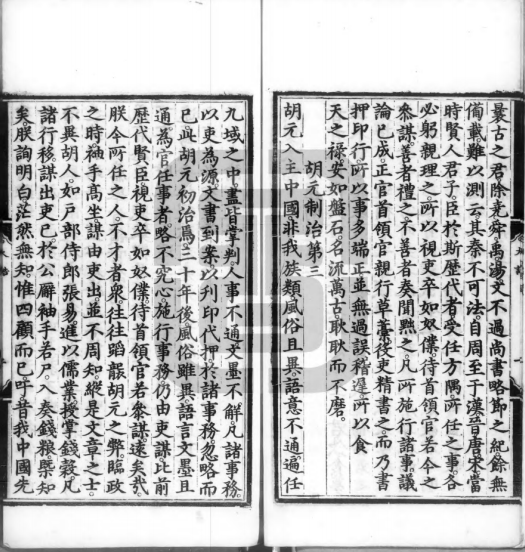 曩古之君除堯舜禹湯文不過尚書略節之紀餘無
備載難以測云其秦不可法自周至于漢晉唐宋當
時賢人君子臣於斯歷代者受任方隅所任之事各
必躬親理之所以視吏卒如奴僕待首領官若今之
叅謀善者禮之不善者奏聞黜之凡所施行諸事議
論已成正官首領官親行草藁後吏精書之而乃書
押印行所以事多端正並無過誤稽遲所以食
天之祿安如盤石名流萬古耿耿而不磨
胡元制治第三
胡元入主中國非我族類風俗且異語意不通遍任
九域之中盡皆掌判人事不通文墨不解凡諸事務
以吏為源文書到案以刋印代押於諸事務忽略而
已此胡元初治焉三十年後風俗雖異語言文墨且
通為官任事者略不究心施行事務仍由吏謀比前
歷代賢臣視吏卒如奴僕待首領官若叅謀遠矣哉
朕今所任之人不才者衆往往蹈襲胡元之弊臨政
之時袖手高坐謀由吏出並不周知縱是文章之士
不異胡人如戶部侍郎張易進以儒業授掌錢穀凡
諸行移謀出吏已於公廨袖手若尸入奏錢糧槩知
矣朕詢明白茫然無知惟四顧而已吁昔我中國先